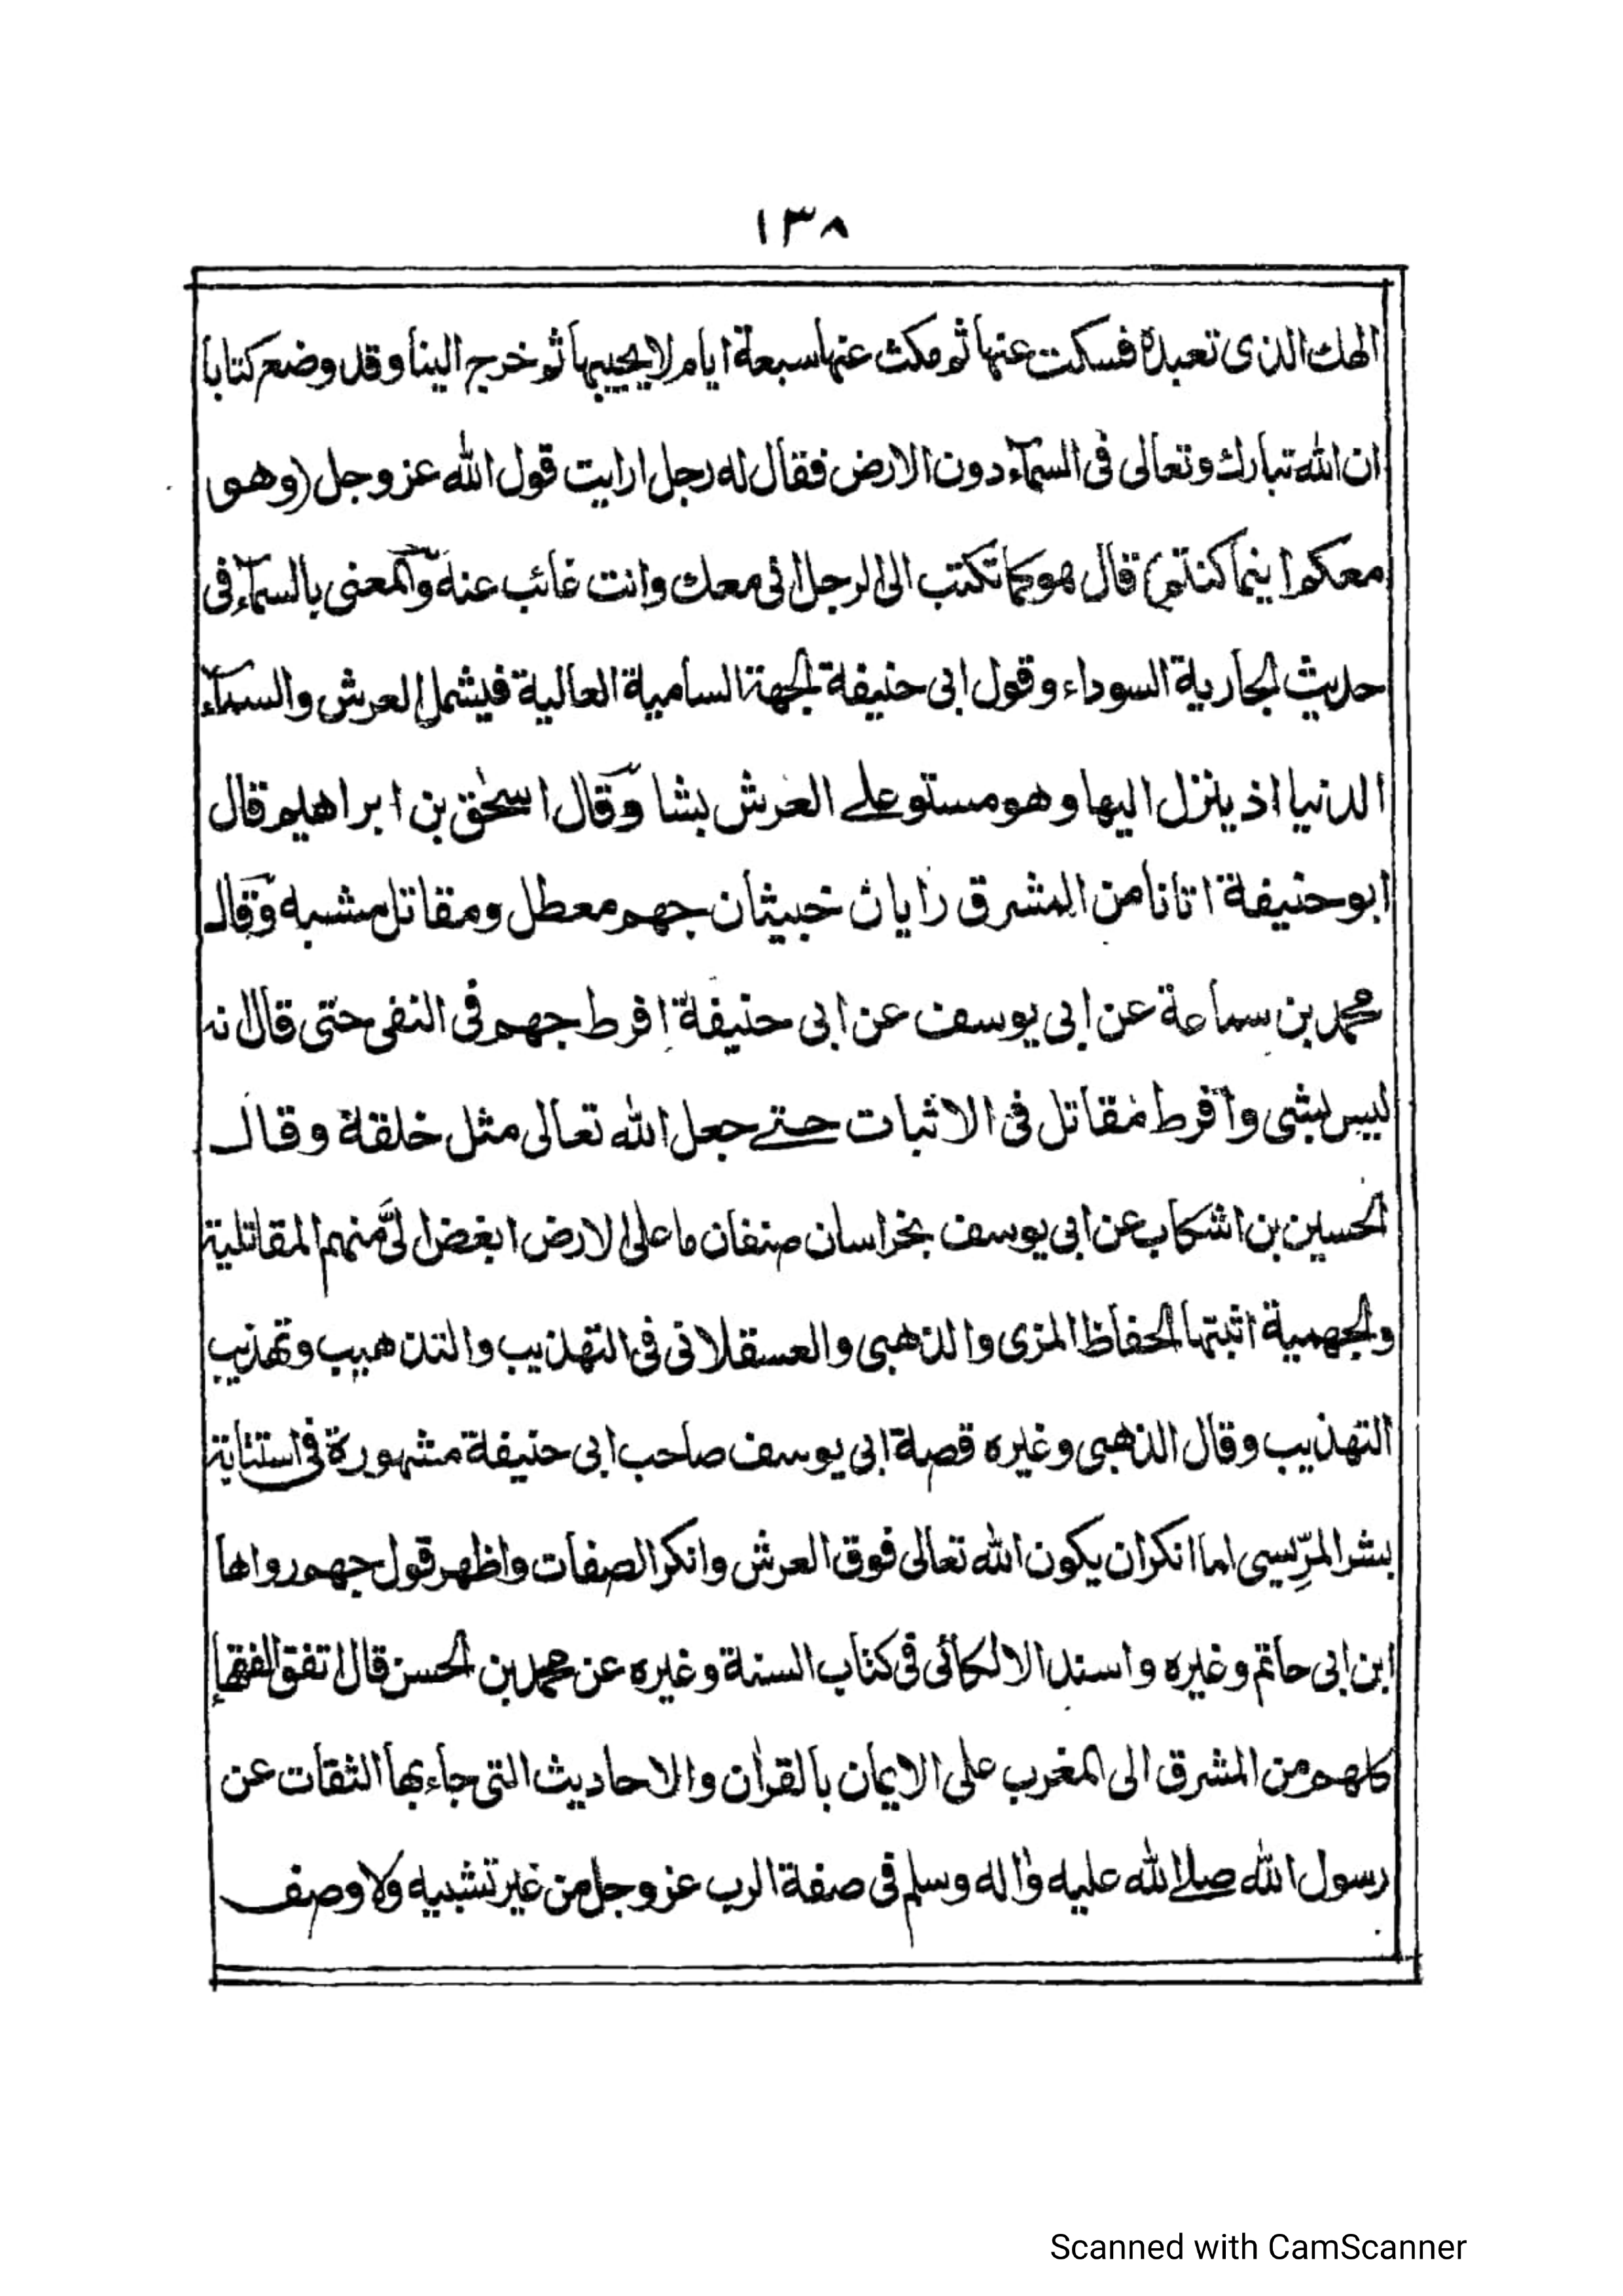 ١٣٨
الهك الذى تعبده فسكت عنها ثم مكث عنها سبعة ايام لا يجيبها ثم خرج الينا وقد وضع كتابا
ان الله تبارك وتعالى فى السمآء دون الارض فقال له رجل ارايت قول الله عز وجل (وهو
معكم اينما كنتم) قال هو كما تكتب الى الرجل انى معك وانت غائب عنه والمعنى بالسمآء فى
حديث الجارية السوداء وقول ابى حنيفة الجهة السامية العالية فيشمل العرش والسمآء
الدنيا اذ ينزل اليها وهو مستو على العرش بشا وقال اسحٰق بن ابراهيم قال
ابو حنيفة اتانا من المشرق رايان خبيثان جهم معطل ومقاتل مشبه وقال
محمد بن سماعة عن ابى يوسف عن ابى حنيفة افرط جهم فى النفى حتى قال انه
ليس بشى وافرط مقاتل فى الاثبات حتى جعل الله تعالى مثل خلقة وقال
الحسين بن اشكاب عن ابى يوسف بخراسان صنفان ما على الارض ابغض الىّ منهم المقاتلية
والجهمية اثبتها الحفاظ المزى والذهبى والعسقلانى فى التهذيب والتذهيب وتهذيب
التهذيب وقال الذهبى وغيره قصة ابى يوسف صاحب ابى حنيفة مشهورة فى استتابة
بشر المرّيسى لما انكر ان يكون الله تعالى فوق العرش وانكر الصفات واظهر قول جهم رواها
ابن ابى حاتم وغيره واسند الالكائى فى كتاب السنة وغيره عن محمد بن الحسن قال اتفق الفقهاء
كلهم من المشرق الى المغرب على الايمان بالقرآن والاحاديث التى جاء بها الثقات عن
رسول الله صلى الله عليه واٰله وسلم فى صفة الرب عز وجل من غير تشبيه ولا وصف
Scanned with CamScanner